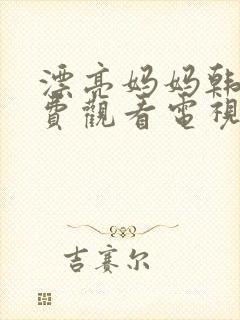 漂亮妈妈韩
費觀看電視
吉赛尔